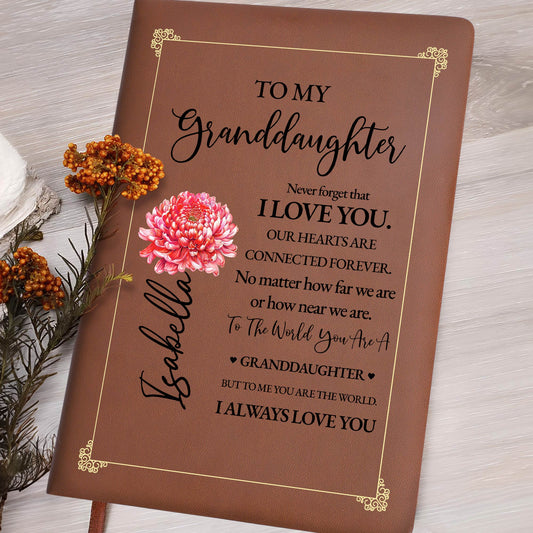 TO MY
Granddaughter
Never forget that
I LOVE YOU.
OUR HEARTS ARE
CONNECTED FOREVER.
No matter how far we are
or how near we are.
To The World You Are A
GRANDDAUGHTER
BUT TO ME YOU ARE THE WORLD.
I ALWAYS LOVE YOU
Isabella